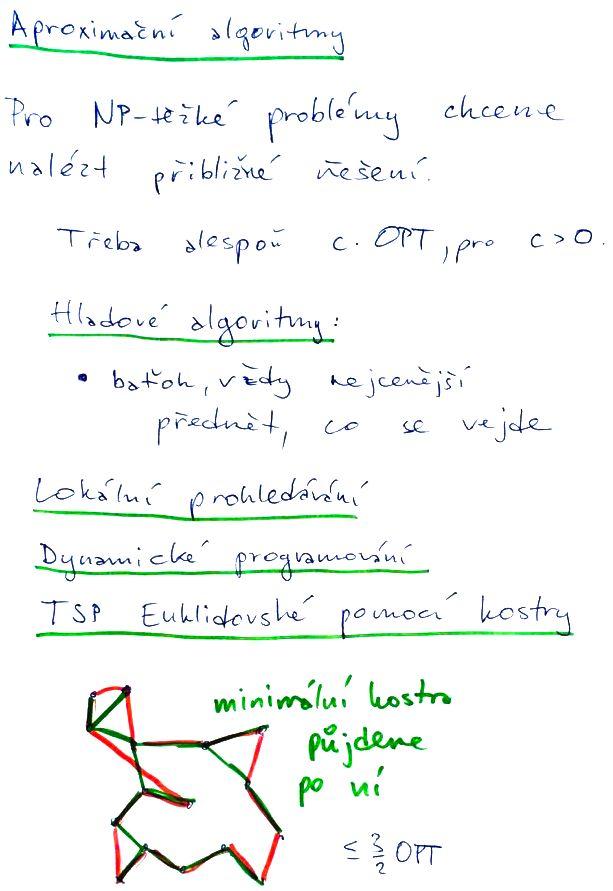 Aproximační algoritmy
Pro NP-těžké problémy chceme
nalézt přibližné řešení.
Třeba alespoň c. OPT, pro c > 0.
Hladové algoritmy:
• baťoh, vždy nejcenější
předmět, co se vejde
Lokální prohledávání
Dynamické programování
TSP Euklidovské pomocí kostry
minimální kostra
půjdeme
po ní
≤ 3/2 OPT